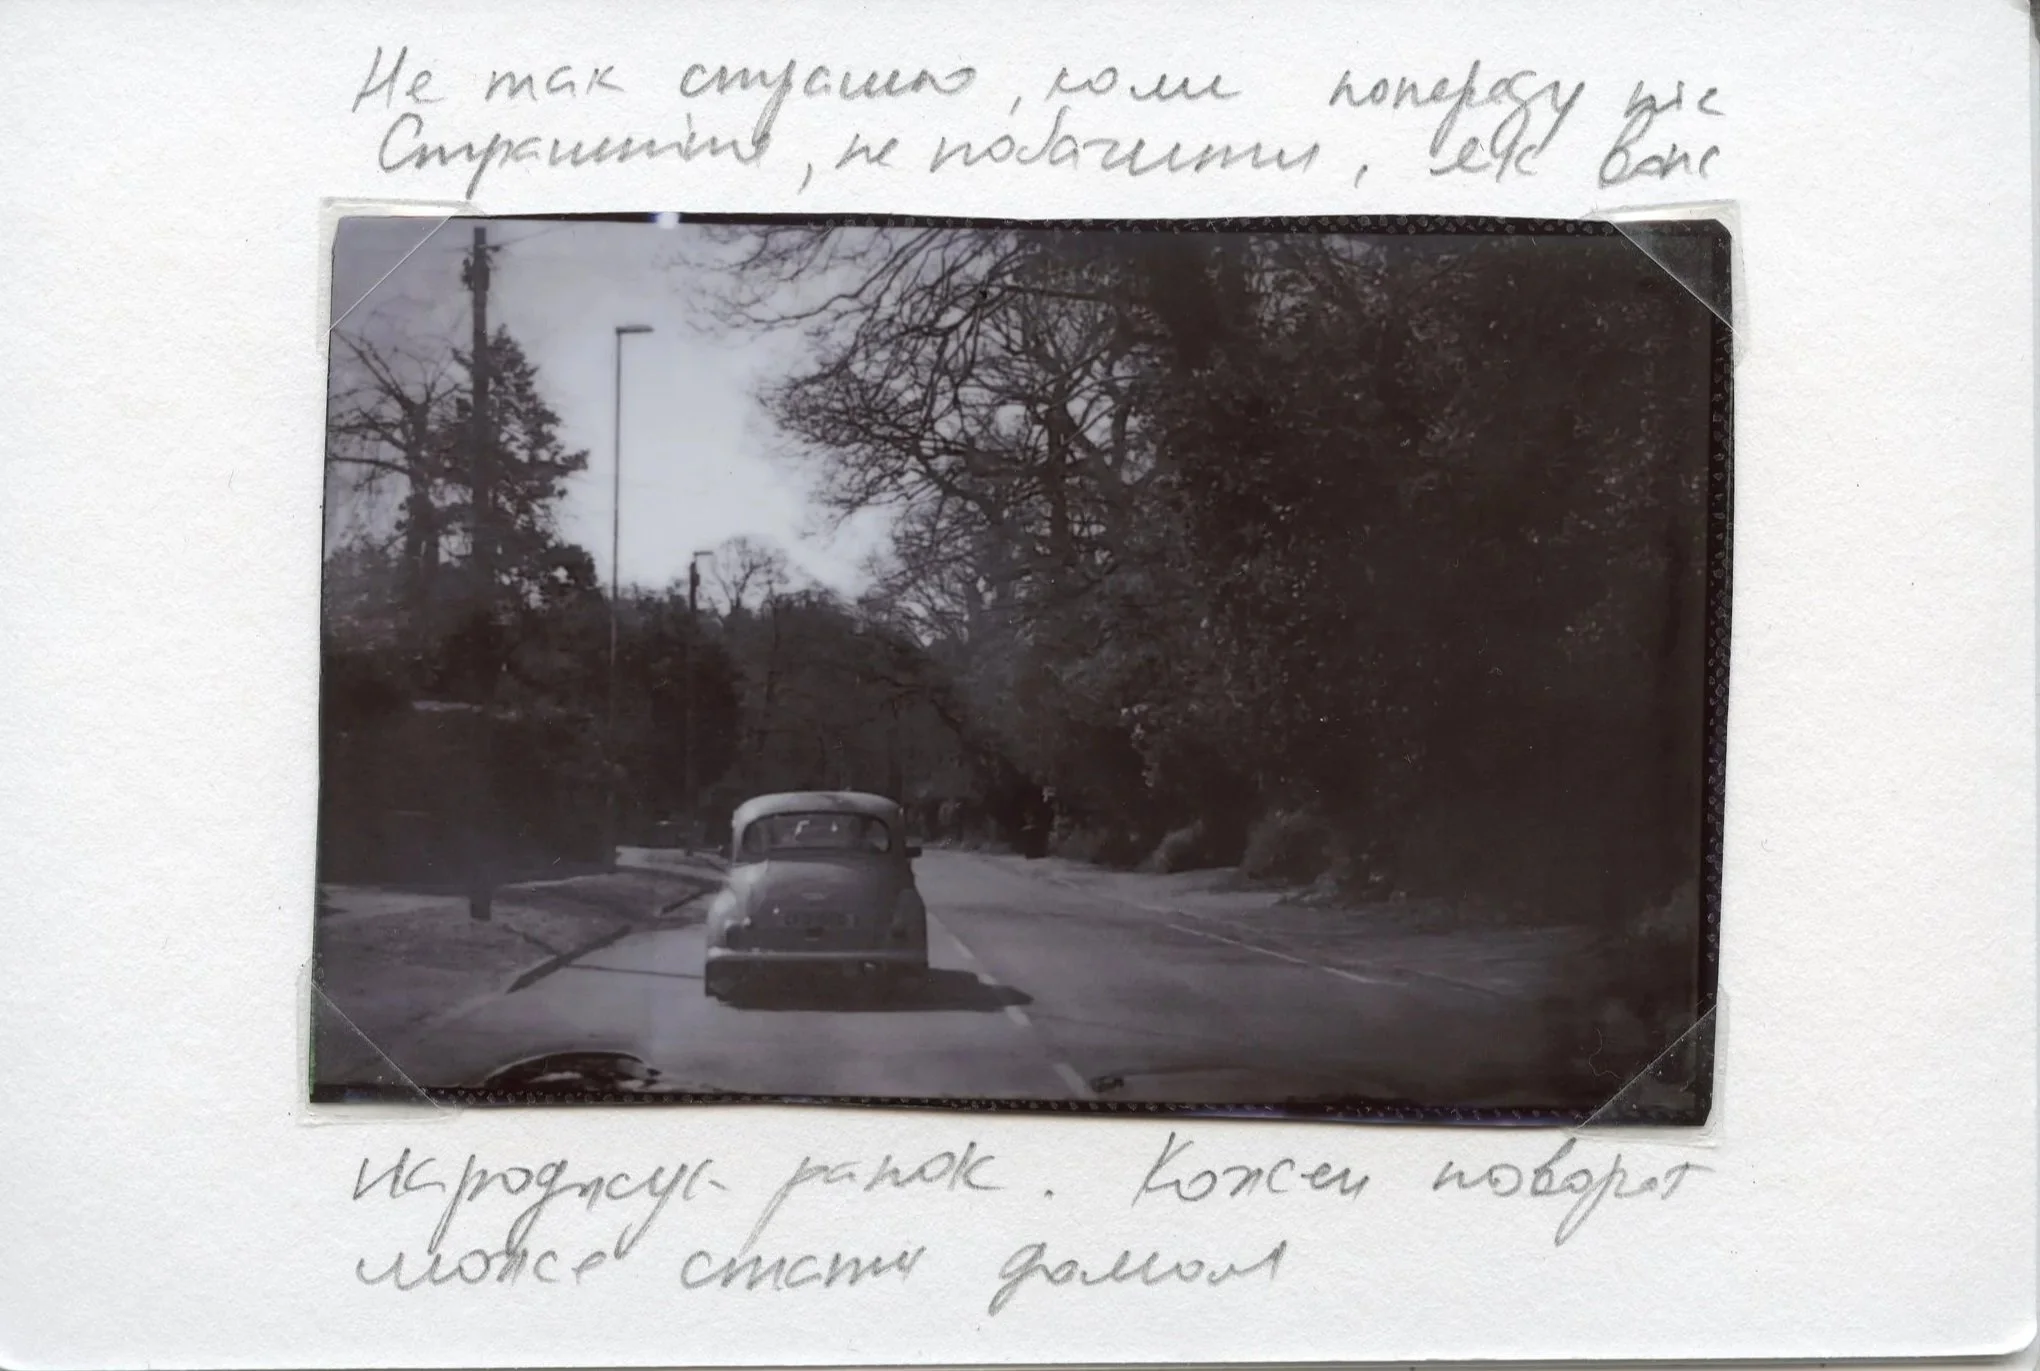 Не так страшно, коли попереду ніс
Страшніше, не побачити, як вона
народжує ранок. Кожен поворот
може стати домом